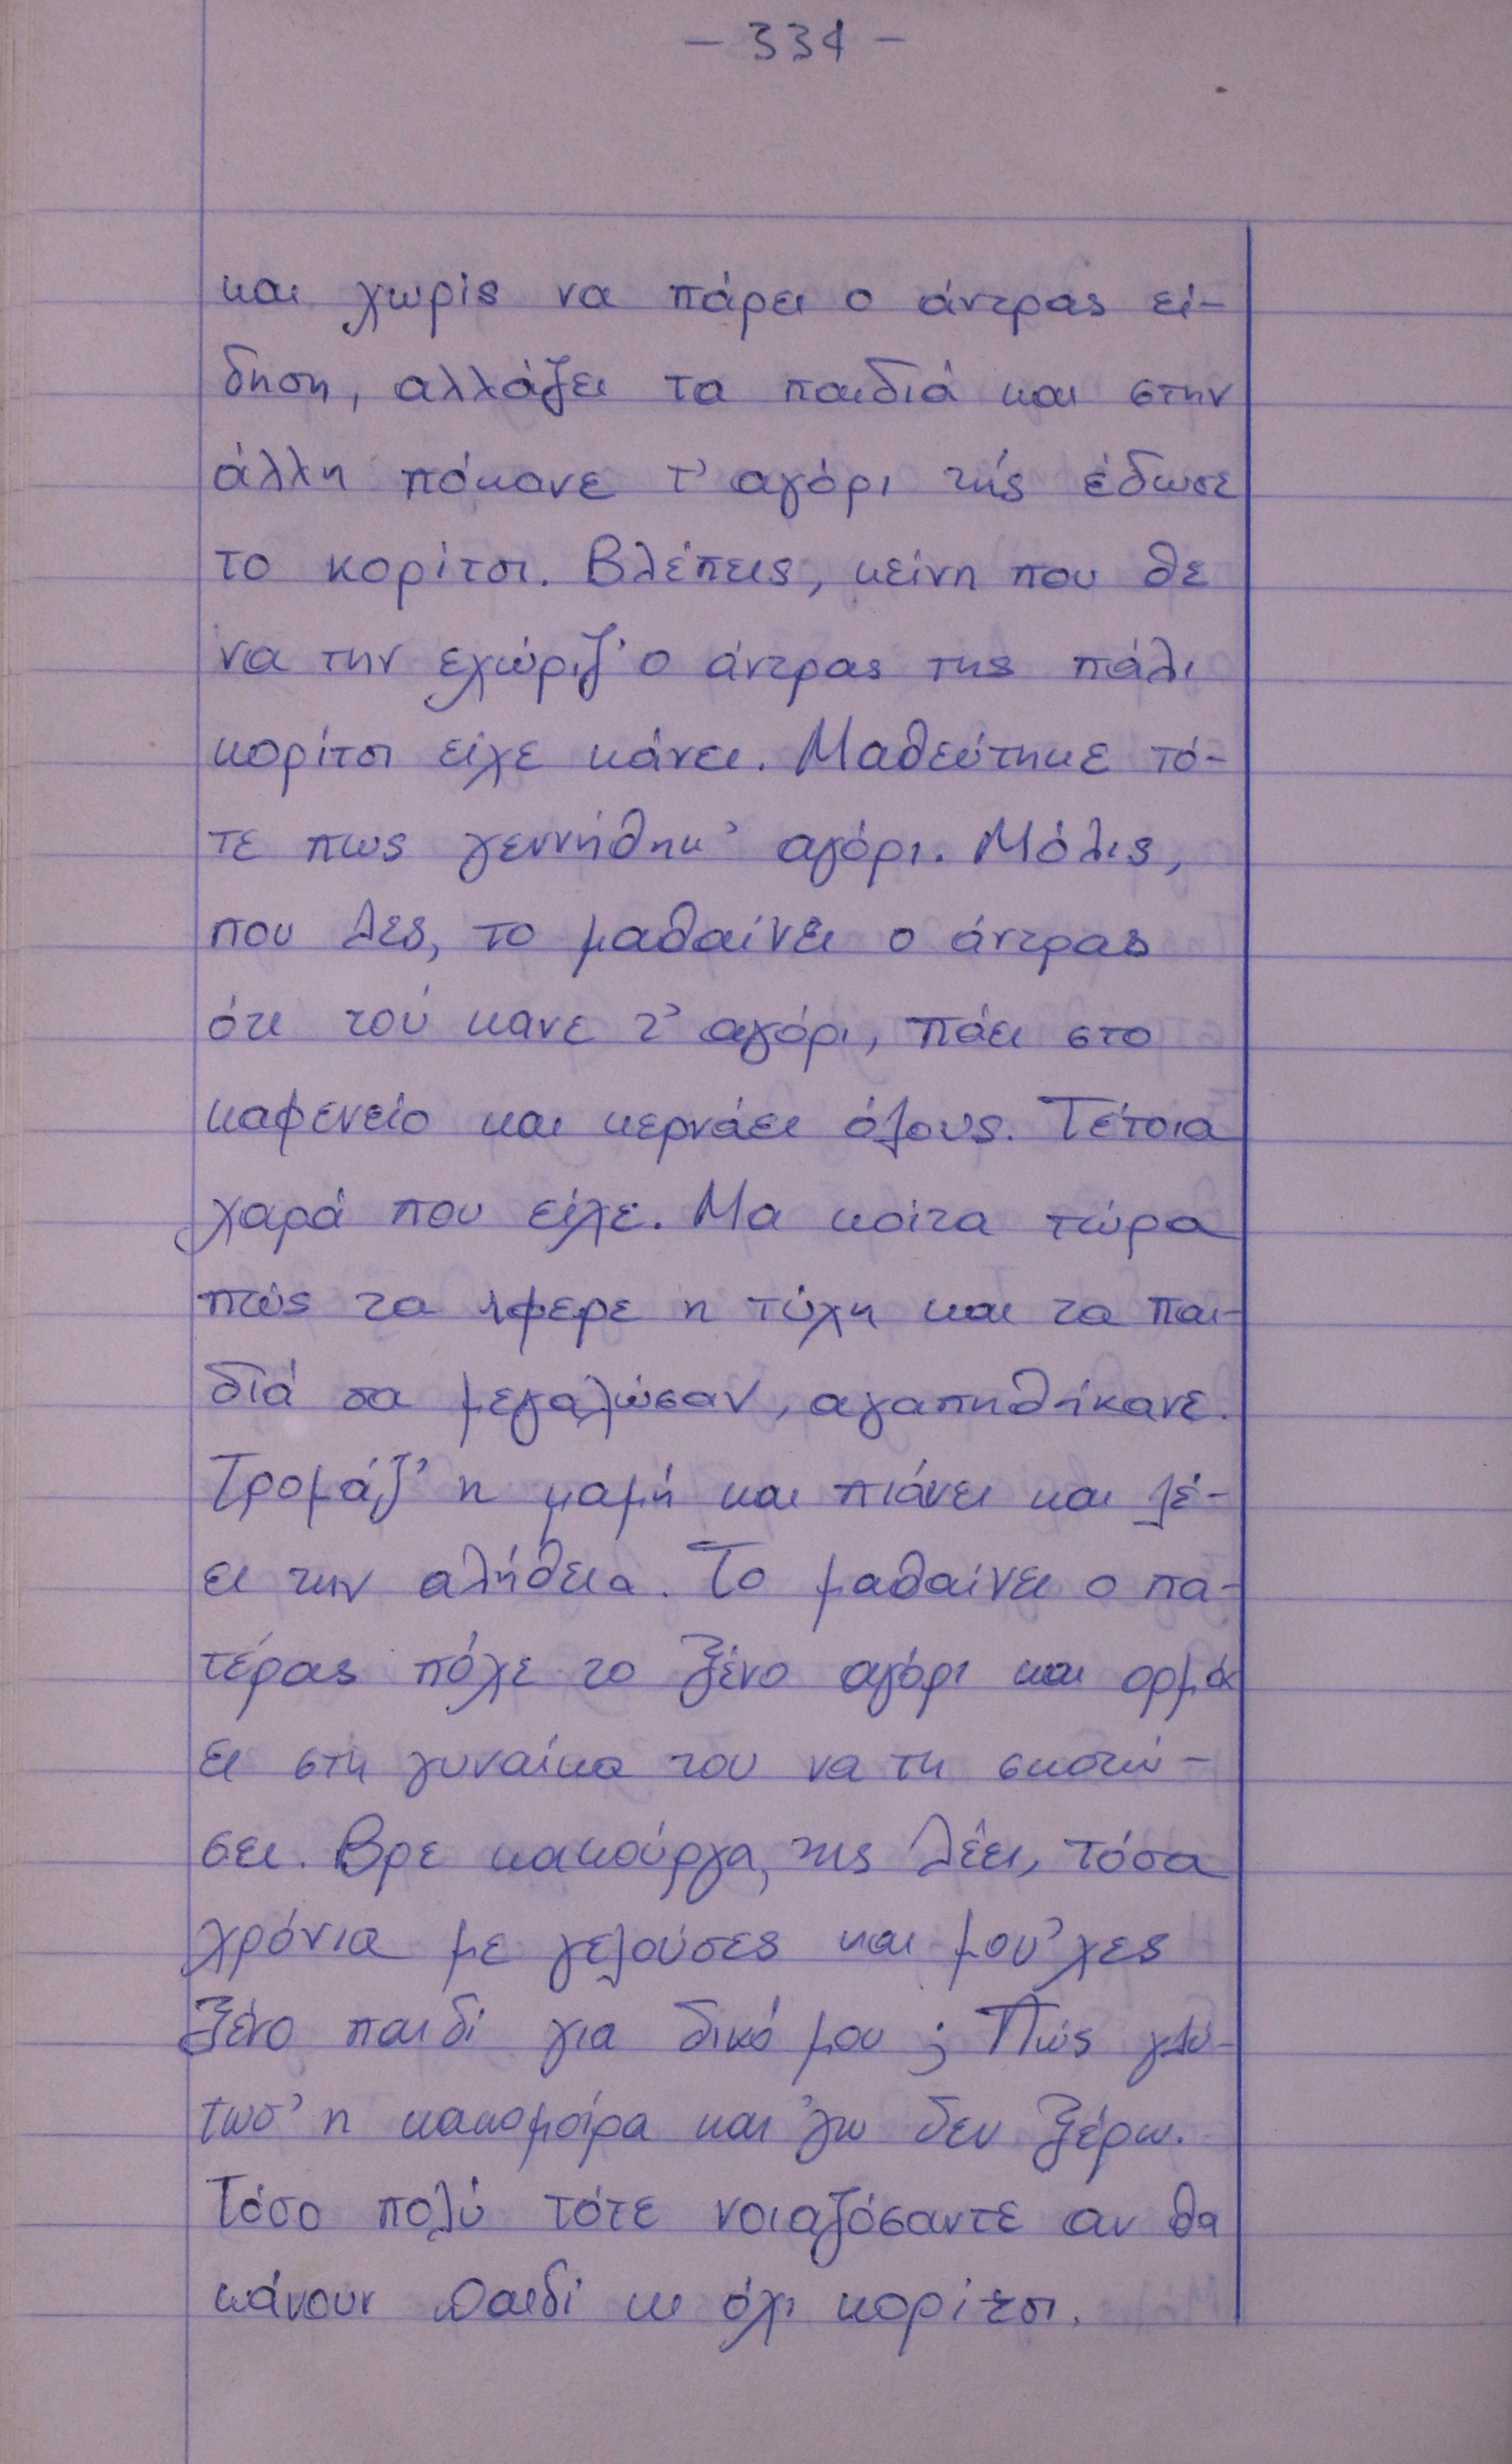 - 334 -
και χωρίς να πάρει ο άντρας εί-
δηση, αλλάζει τα παιδιά και στην
άλλη πόκανε τ' αγόρι τής έδωσε
το κορίτσι. Βλέπεις, κείνη που θε
να την εχώριζ' ο άντρας της πάλι
κορίτσι είχε κάνει. Μαθεύτηκε τό-
τε πως γεννήθηκ' αγόρι. Μόλις,
που λες, το μαθαίνει ο άντρας
ότι τού κανε τ' αγόρι, πάει στο
καφενείο και κερνάει όλους. Τέτοια
χαρά που είχε. Μα κοίτα τώρα
πώς τα 'φερε η τύχη και τα παι-
διά σα μεγαλώσαν, αγαπηθήκανε.
Τρομάζ' η μαμή και πιάνει και λέ-
ει την αλήθεια. Το μαθαίνει ο πα-
τέρας πόχε το ξένο αγόρι και ορμά
ει στη γυναίκα του να τη σκοτώ-
σει. Βρε κακούργα, της λέει, τόσα
χρόνια με γελούσες και μου 'χες
ξένο παιδί για δικό μου; Πώς γλύ-
τωσ' η κακομοίρα και 'γω δεν ξέρω.
Τόσο πολύ τότε νοιαζόσαντε αν θα
κάνουν παιδί κι όχι κορίτσι.